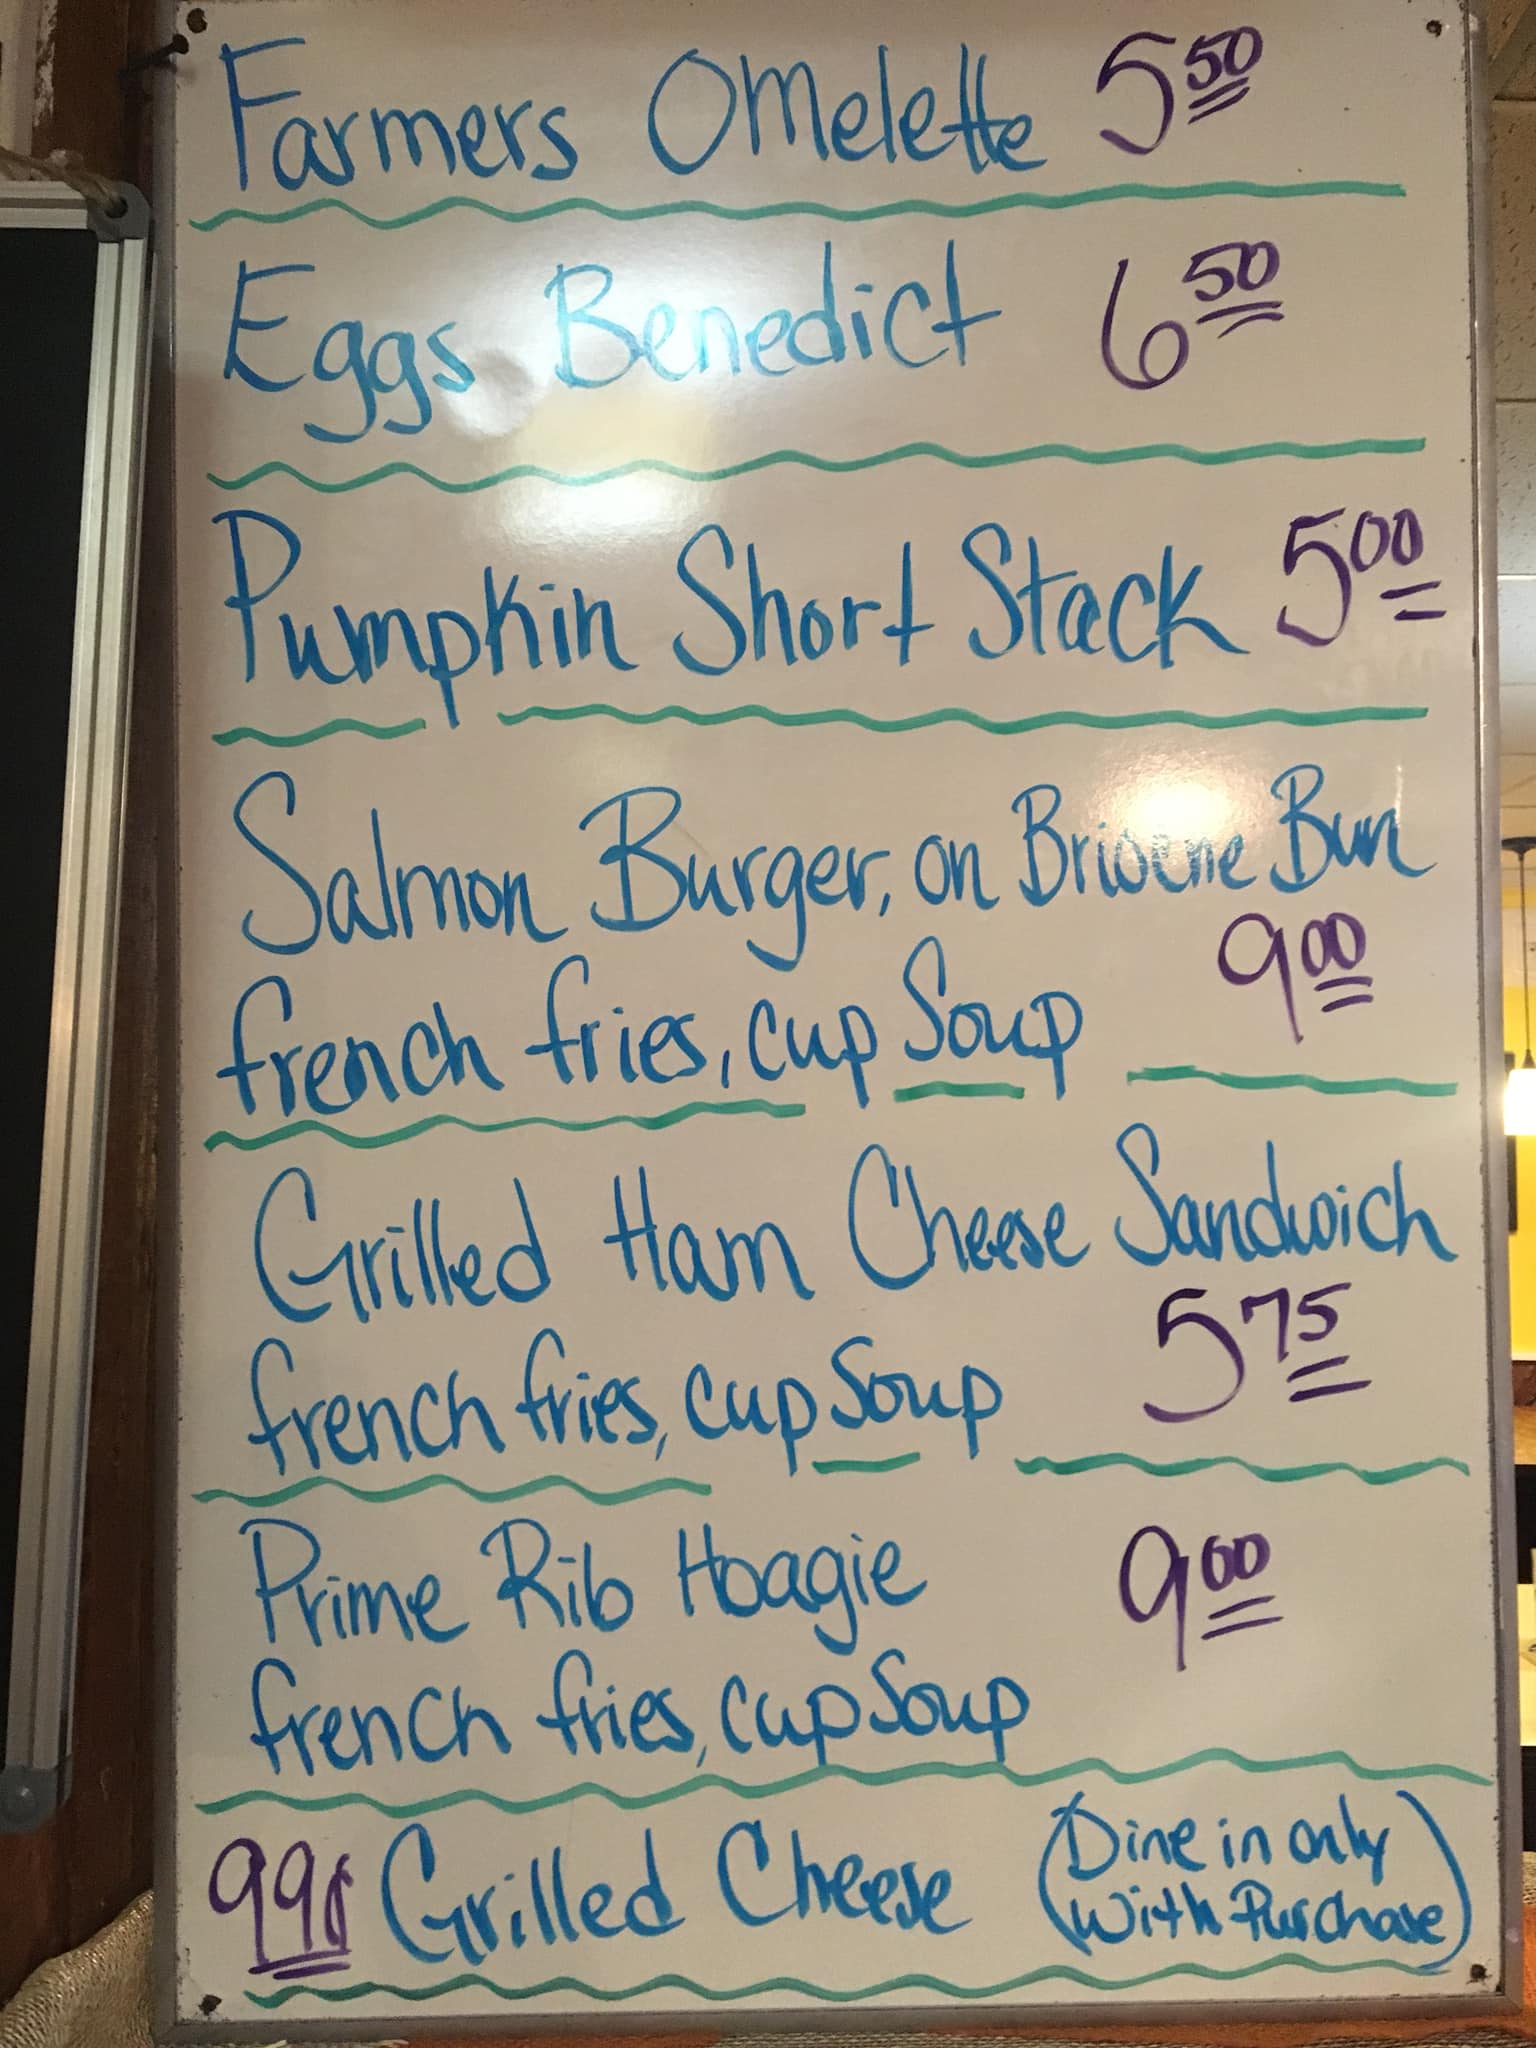 Farmers Omelette 5 50
Eggs Benedict 6 50
Pumpkin Short Stack 5 00
Salmon Burger, on Brioche Bun
french fries, cup Soup 9 00
Grilled Ham Cheese Sandwich
french fries, cup Soup 5 75
Prime Rib Hoagie 9 00
french fries, cup Soup
99¢ Grilled Cheese (Dine in only
with Purchase)